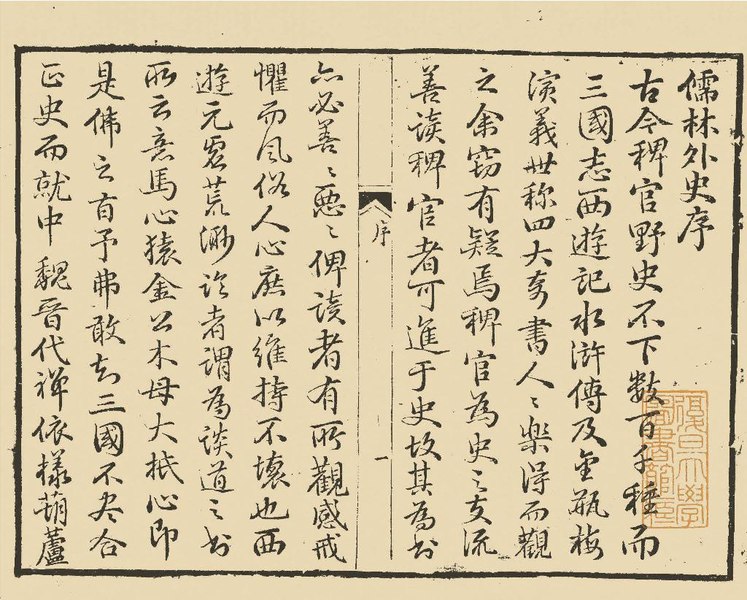 儒林外史序
古今稗官野史不下数百千種而
三國志西遊記水滸傳及金瓶梅
演義世称四大奇書人〻樂得而觀
之余竊有疑焉稗官為史之支流
善读稗官者可進于史故其為书
序
一
亦必善〻惡〻俾读者有所觀感戒
懼而风俗人心庶以維持不壞也西
遊元虛荒渺论者謂為談道之书
所云意馬心猿金公木母大抵心即
是佛之旨予弗敢知三國不尽合
正史而就中魏晉代禅依樣葫蘆
復旦大學
圖書館